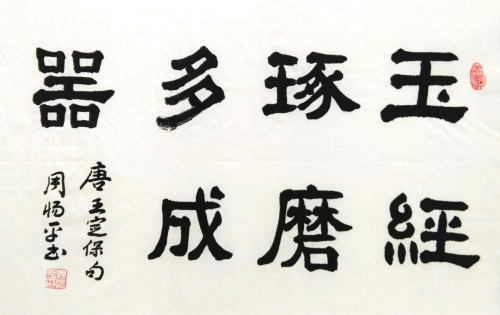 玉經
琢磨
多成
器
唐王定保句
周楊平书